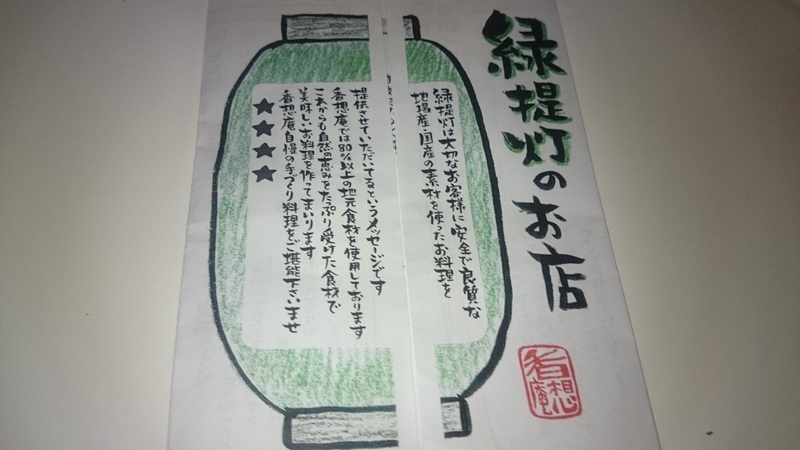 緑提灯のお店
緑提灯は大切なお客様に安全で良質な
地場産・国産の素材を使ったお料理を
提供させていただいてるというメッセージです
香想庵では80%以上の地元食材を使用しております
これからも自然の恵みをたっぷり受けた食材で
美味しいお料理を作ってまいります
香想庵自慢の手づくり料理をご堪能下さいませ
★★★★
香想庵